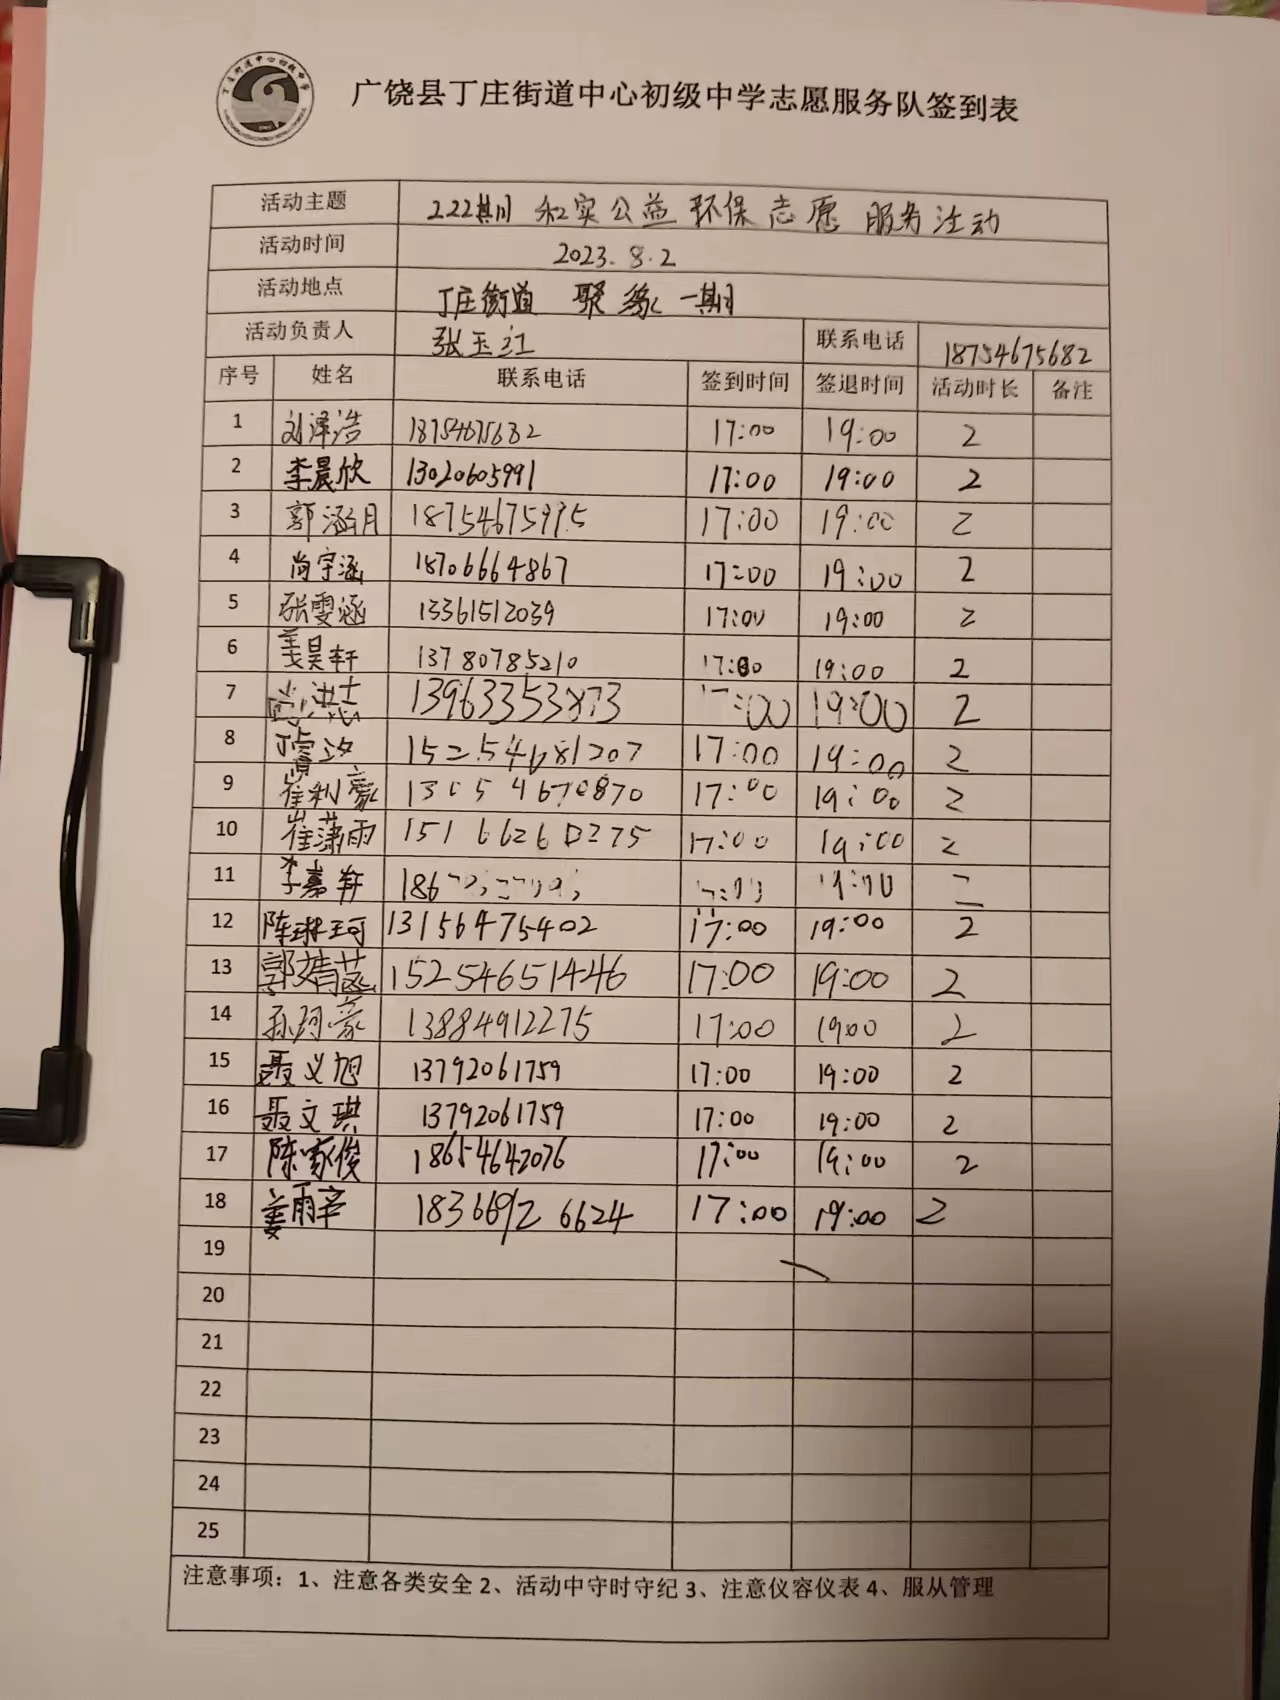 丁庄街道中心初级中学
广饶县丁庄街道中心初级中学志愿服务队签到表
活动主题 222期 和实公益 环保志愿 服务活动
活动时间 2023.8.2
活动地点 丁庄街道 聚缘一期
活动负责人 张玉江 联系电话 18754675682
序号 姓名 联系电话 签到时间 签退时间 活动时长 备注
1 刘泽浩 18754675682 17:00 19:00 2
2 李晨欣 13020605991 17:00 19:00 2
3 郭涵月 18754675995 17:00 19:00 2
4 尚宇涵 18706664867 17:00 19:00 2
5 张雯涵 13361512039 17:00 19:00 2
6 姜昊轩 13780785210 17:00 19:00 2
7 尚洪志 13963353873 17:00 19:00 2
8 丁睿汝 15254681207 17:00 19:00 2
9 崔利豪 13054670870 17:00 19:00 2
10 崔潇雨 15166260275 17:00 19:00 2
11 李嘉轩 19:00 2
12 陈琳珂 13156475402 17:00 19:00 2
13 郭婧菡 15254651446 17:00 19:00 2
14 孙珂豪 13884912275 17:00 19:00 2
15 聂义旭 13792061759 17:00 19:00 2
16 聂文琪 13792061759 17:00 19:00 2
17 陈家俊 18654642076 17:00 19:00 2
18 姜雨辛 18366926624 17:00 19:00 2
19
20
21
22
23
24
25
注意事项：1、注意各类安全 2、活动中守时守纪 3、注意仪容仪表 4、服从管理